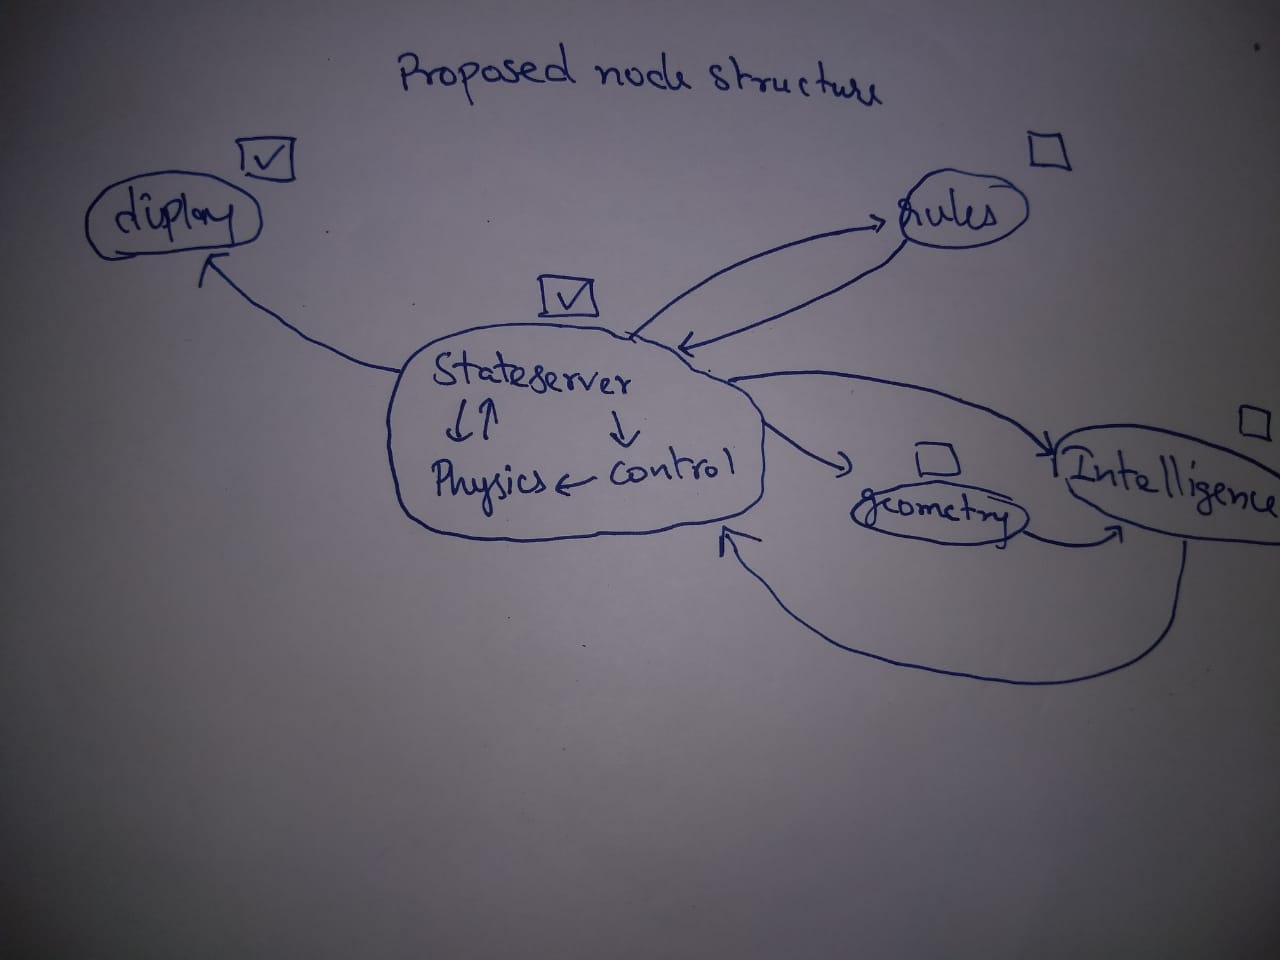 Proposed node structure
display
rules
Stateserver
Physics ← Control
geometry
Intelligence